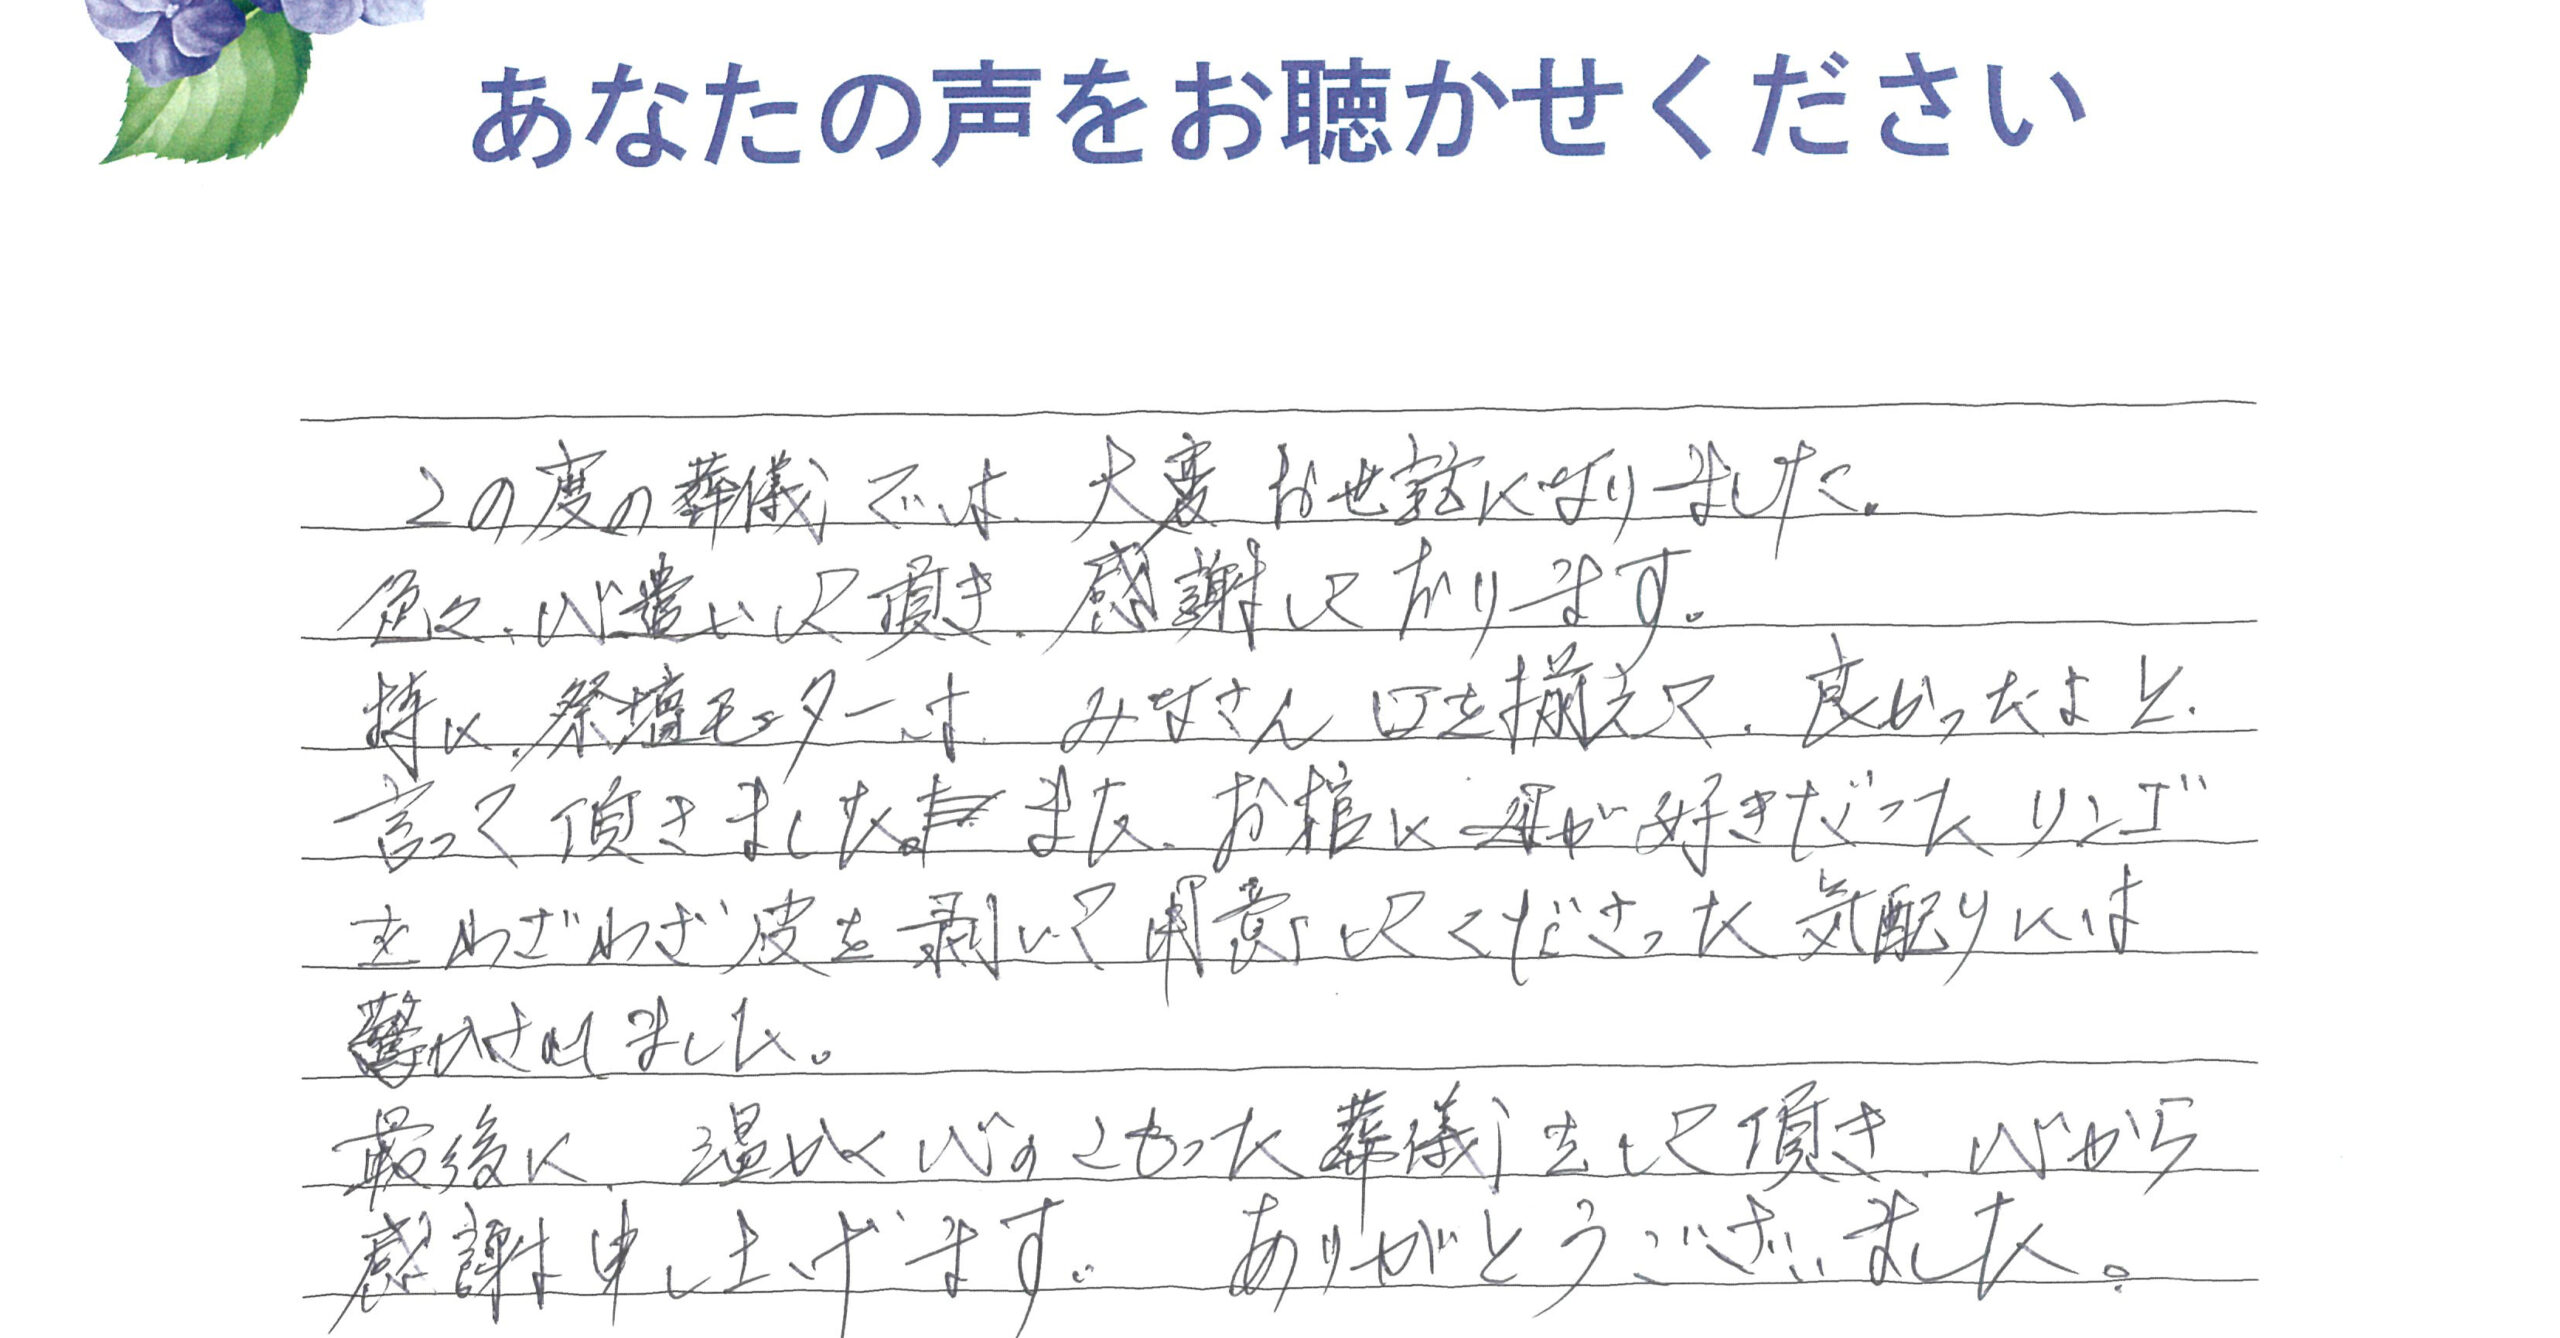 あなたの声をお聴かせください
この度の葬儀では、大変お世話になりました。
色々、心遣いして頂き、感謝しております。
特に、祭壇モニターは、みなさん口を揃えて、良かったよと、
言って頂きました。また、お棺に母が好きだったリンゴ
をわざわざ皮を剥いて用意してくださった気配りには
驚かされました。
最後に、温かく心のこもった葬儀をして頂き、心から
感謝申し上げます。ありがとうございました。